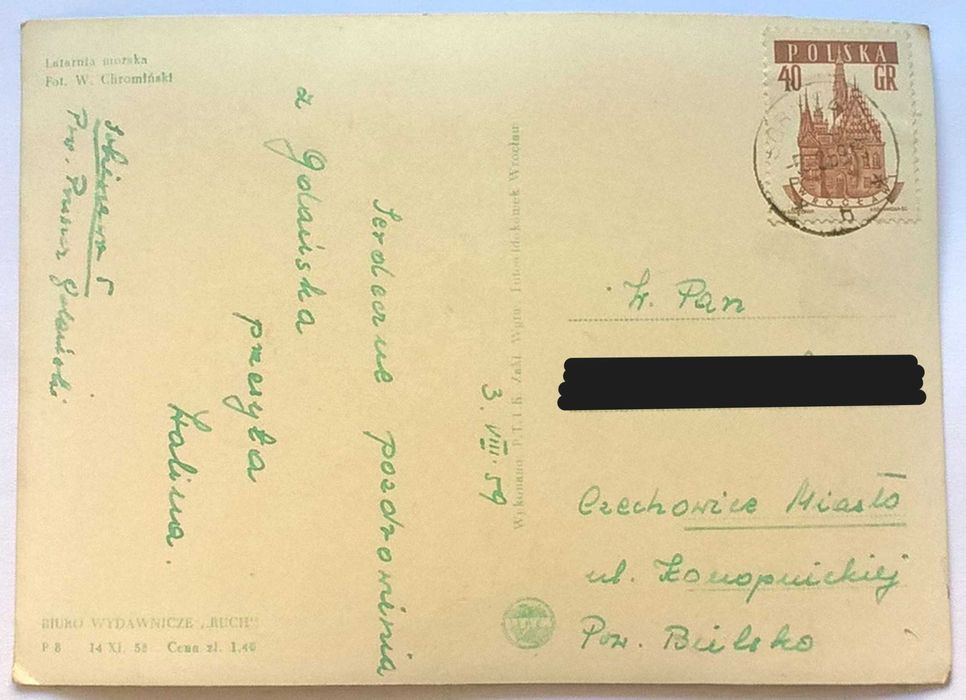 Latarnia morska
Fot. W. Chromiński
Pow. Pruszcz Gdański
Serdeczne pozdrowienia
z Gdańska
przesyła
Halina.
3. VIII. 59
Wykonano P.T.I.K. Zakł. Wytw. Fotowidokówek Wrocław
BIURO WYDAWNICZE „RUCH"
P 8 14 XI. 58 Cena zł. 1,40
POLSKA
40 GR
WROCŁAW
W. Pan
Czechowice Miasto
ul. Konopnickiej
Pow. Bielsko